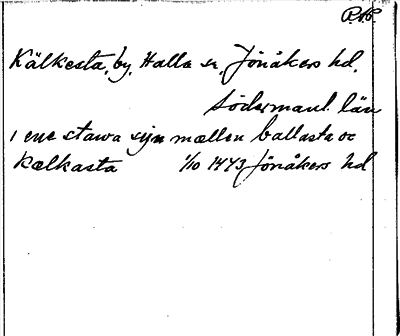 P.H.
Kälkesta, by, Halla sn, Jönåkers hd.
Södermanl. län
i ene stawa syn mællon ballasta oc
kælkasta 1/10 1473 Jönåkers hd